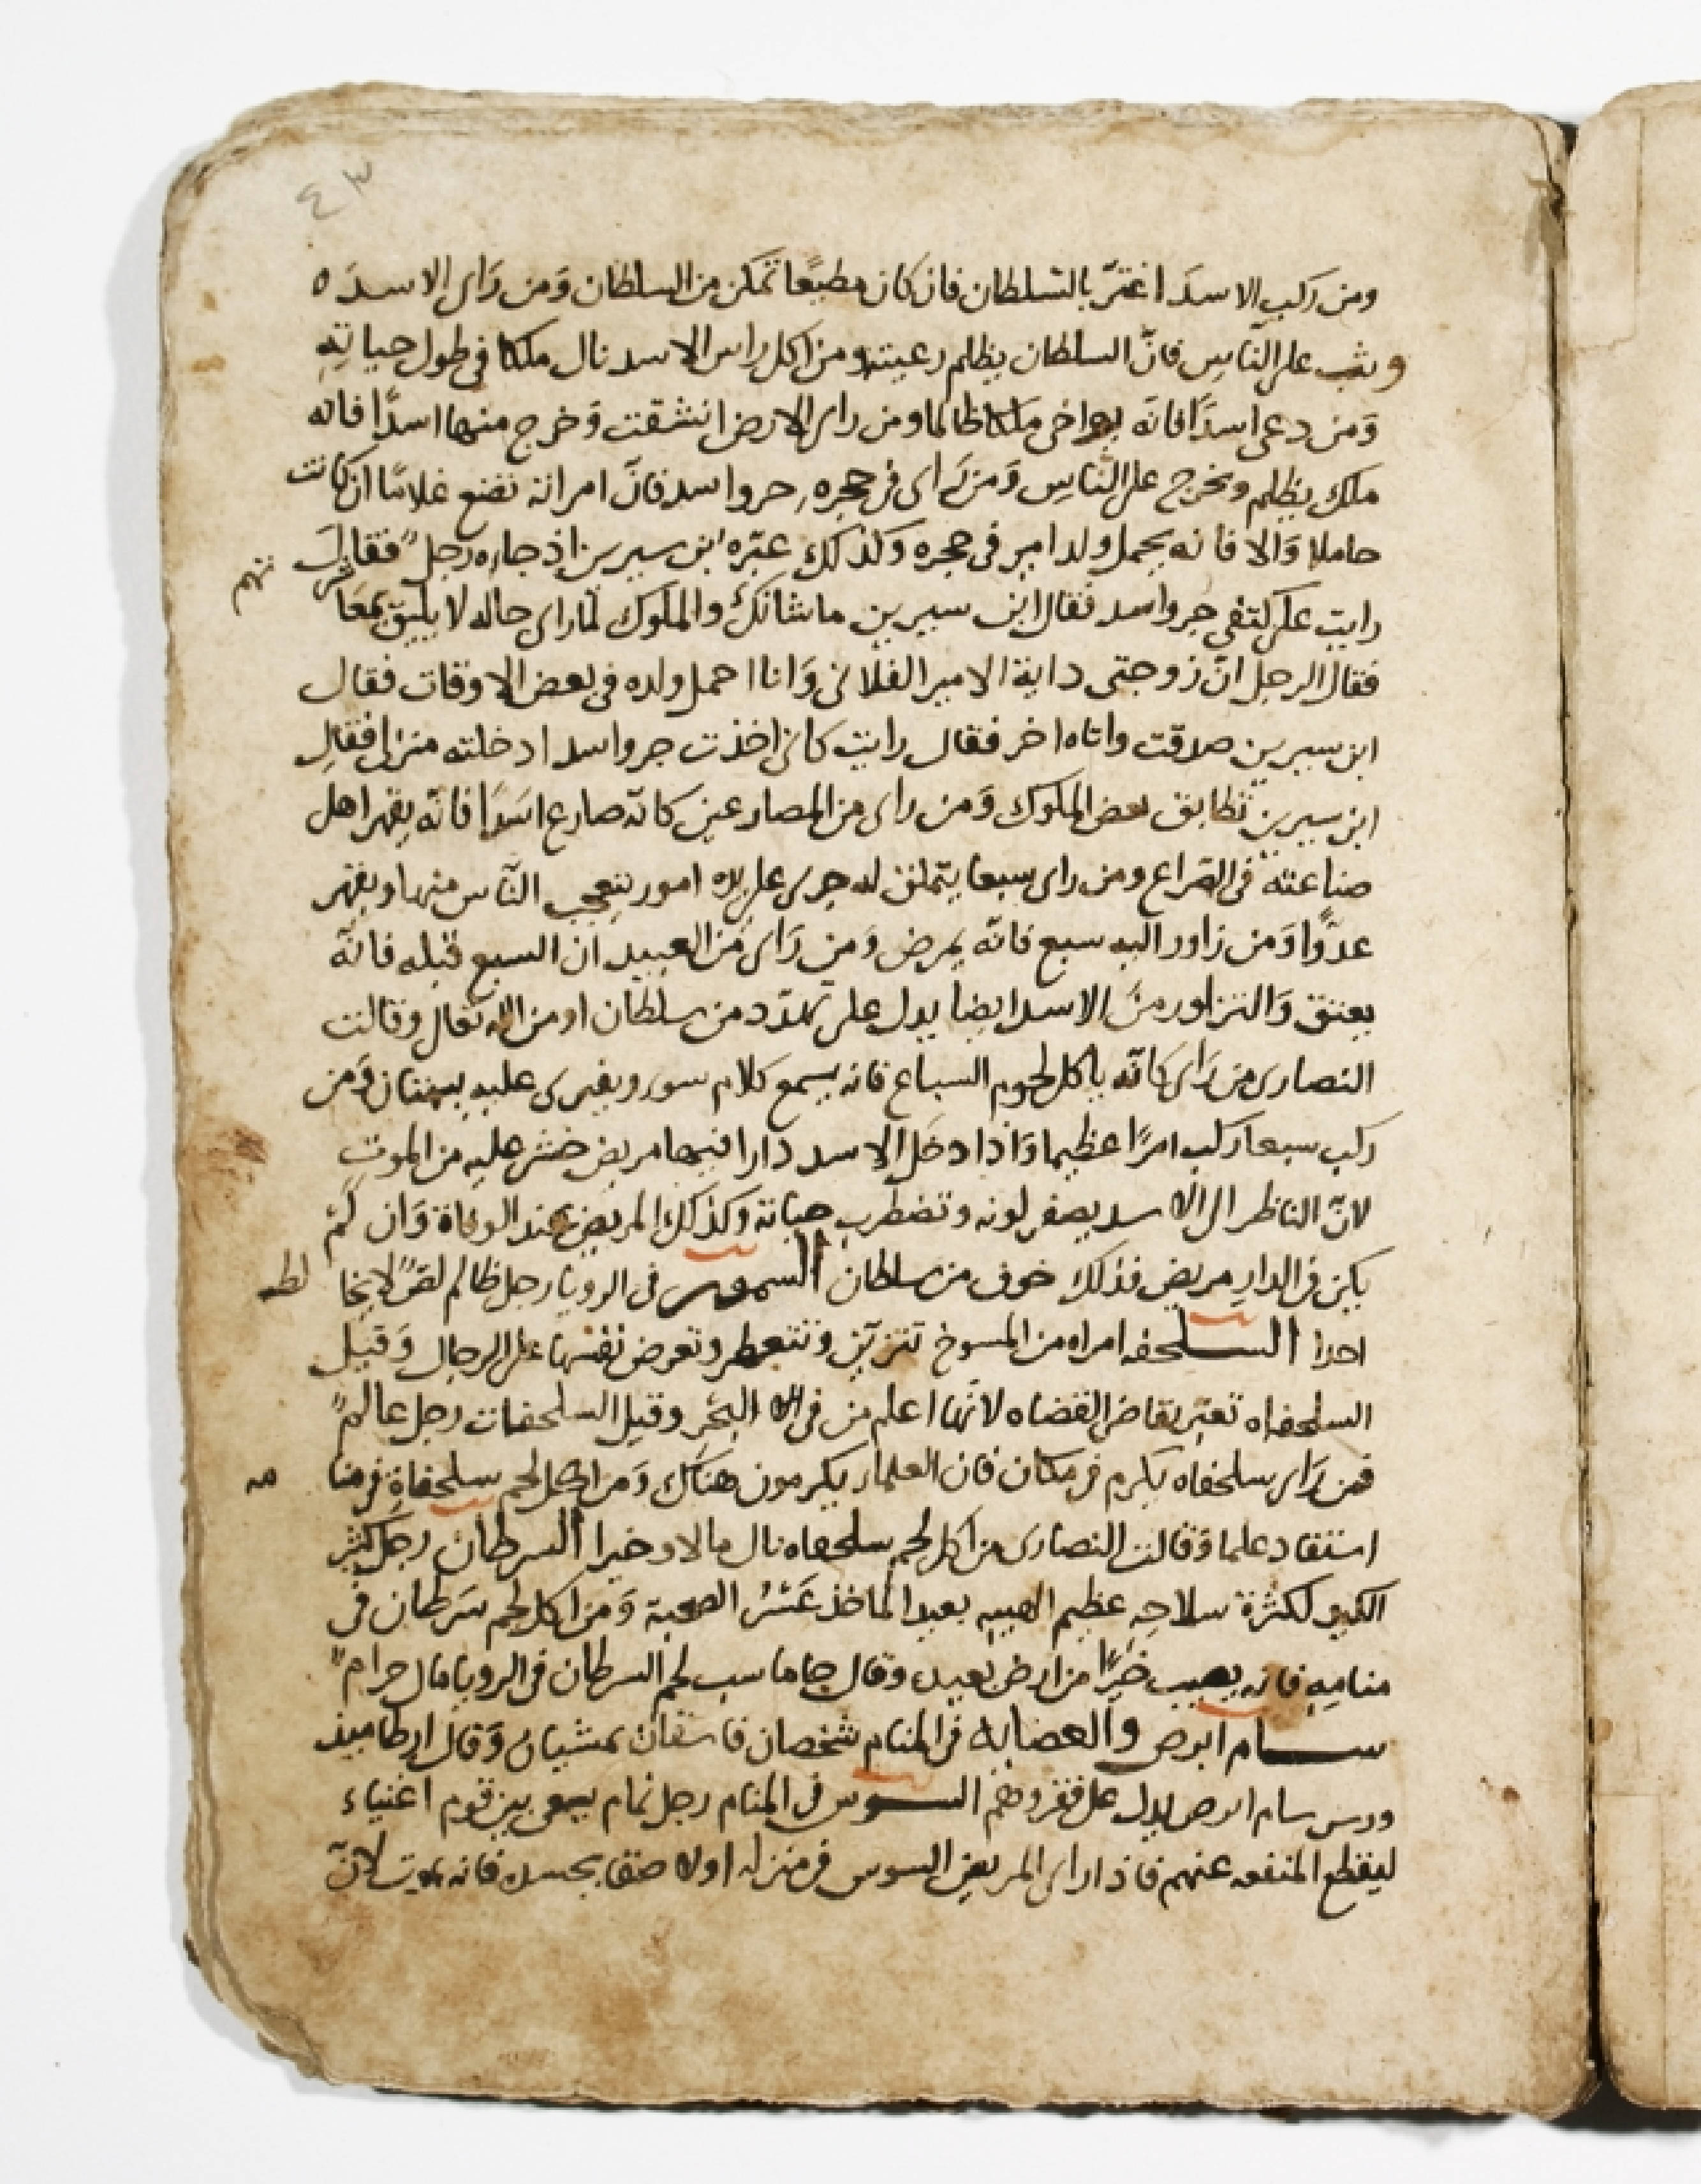 ٤٣
ومن ركب الاسدَ اغترّ بالسلطان فان كان مطيعًا تمكن من السلطان وَمن رَاى الاسدَ ه
وثب على النّاسِ فانّ السلطان يظلم رعيته ومن اكل راس الاسد نال ملكا في طول حياتِهِ
وَمن دعى اسدًا فانه يواخي ملكا ظالما ومن راى الارض انشقت وَخرج منها اسدًا فانه
ملك يظلم ويخرج على النّاسِ وَمن رَاى في حجره جرو اسد فانّ امراته تضع غلامًا ان كانت
حاملا وَالا فانه يحمل ولد امير في حجره وكذلك عبّره ابن سيرين اذ جاءه رجلٌ فقال
رايت على كتفي جرو اسد فقال ابن سيرين ما شانك والملوك لما راى حاله لا يليق بمعا
شرتهم
فقال الرجل انّ زوجتى داية الامير الفلانى وَانا احمل ولده في بعض الاوقات فقال
ابن سيرين صدقت واتاه اخر فقال رايت كانى اخذت جرو اسد ادخلته منزلى فقال
ابن سيرين تطابق بعض الملوك وَمن راى من المصارعين كانه صارع اسَدًا فانّه يقهر اهل
صناعته في الصراع ومن راى سبعا يتملق له جرى على يده امور يتعجب النّاس منها ويقهر
عدوًّا وَمن زاور اليه سبع فانّه يمرض وَمن رَاى مَن العبيد ان السبع قتله فانّه
يعتق وَالتزاور منَ الاسد ايضا يدل على تهدّد من سلطان او من الله تعالى وقالت
النصارى من رَاى كانّه ياكل لحوم السباع فانه يسمع كلام سوء ويفترى عليه ببهتان وَمن
ركب سبعا ركب امرًا عظيما وَاذا دخَل الاسد دارا فيها مريض خشى عليه من الموتِ
لانّ الناظر الى الاسد يصفر لونه وتضطرب حياته وَكذلك المريض عند الوفاة وَان لَمْ
يكن في الدارِ مريض فذلك خوف من سلطان السمور في الرويا رجل ظالم لصٌ لا يخا
لطه
احدا السلحفه امراه من المسوخ تتزيّن وتتعطر وتعرض نفسها على الرجال وَقيل
السلحفاه تعبّر بقاضى القضاه لانّها اعلم من فى البحْرِ وقيل السلحفاة رجل عالمٌ
فمن رَاى سلحفاه يكرم في مكان فان العلماء يكرمون هناك وَمن اكل لحم سلحفاةٍ في منا
مه
استفاد علما وَقالت النصارى من اكل لحم سلحفاه نال مالا وخيرا السرطان رجل كثير
الكيد لكثرة سلاحِه عظيم الهيبه بعيد الماخذ عَسْرُ الصحبة وَمن اكل لحم سَرَطان في
منامِهِ فانه يصيب خيرًا من ارض بعيده وقال جاماسب لحم السرطان في الرويا مال حرامٌ
سام ابرص والعضايه في المنام شخصان فاسقان يمشيان وَقال ارطاميذ
ورس سام ابرص يدل على فقر وهم السوس في المنام رجل نمام يسعى بين قوم اغنياء
ليقطع المنفعه عنهم فاذا راى المريض السوس في منزله اولا صقا بجسده فانه يموت لانّ